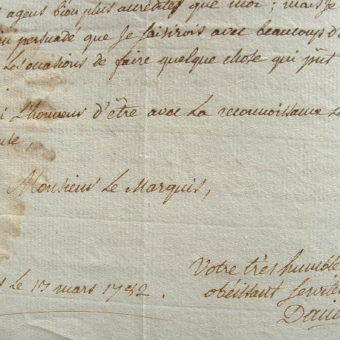 agens bien plus accrédités que moi; mais je
persuadé que je saisirois avec beaucoup d
les occasions de faire quelque chose qui pût
l'honneur d'être avec la reconnoissance la
Monsieur le Marquis,
le 17 mars 1782.
Votre très humble
obéissant servite
Danie